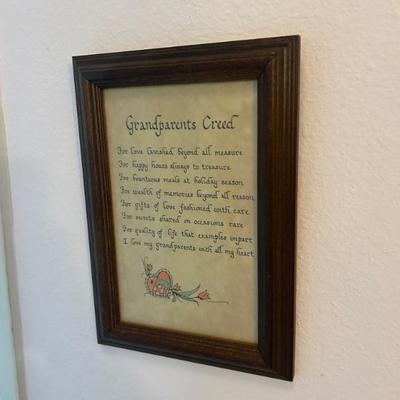 Grandparents Creed
For love lavished beyond all measure
For happy hours always to treasure
For bounteous meals at holiday season
For wealth of memories beyond all reason
For gifts of love fashioned with care
For sweets shared on occasions rare
For quality of life that examples impart
I love my grandparents with all my heart